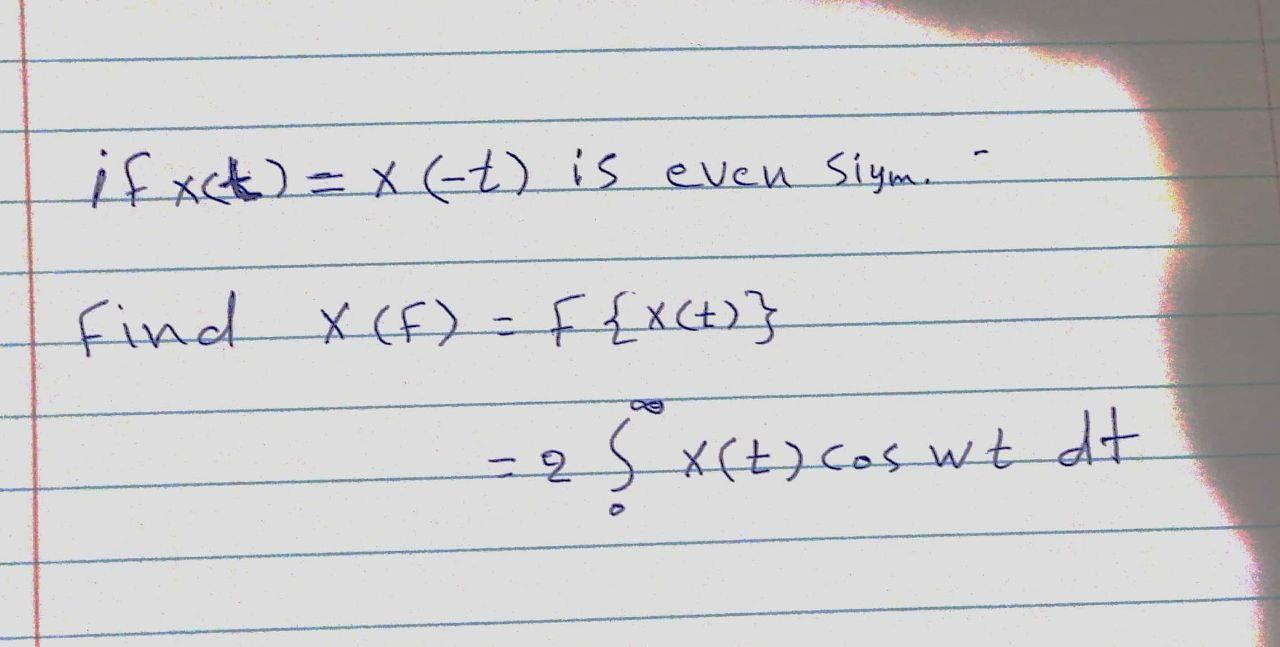 if x(t) = x(-t) is even siym. -
Find X(F) = F{x(t)}
= 2 ∫₀^∞ x(t) cos wt dt